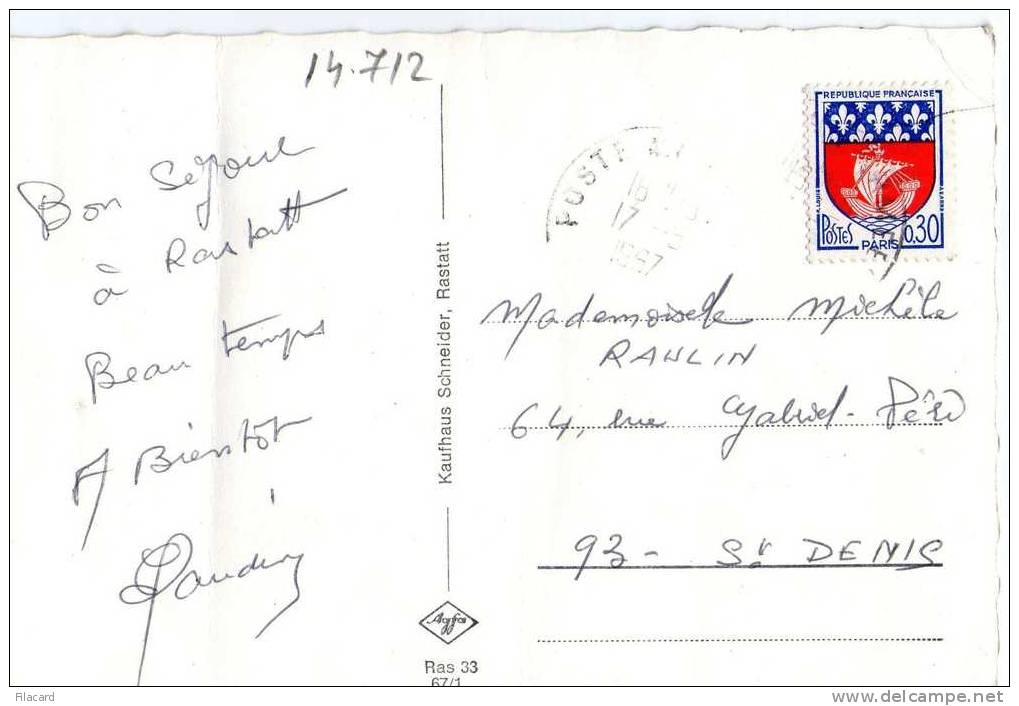 14.712
Bon séjour
à Rastatt
Beau temps
A Bientôt
Kaufhaus Schneider, Rastatt
Agfa
Ras 33
67/1
REPUBLIQUE FRANÇAISE
POSTES 0,30
PARIS
POSTE
17
1967
Mademoiselle Michèle
RAULIN
64, rue Gabriel-Péri
93 - St DENIS
filacard
www.delcampe.net